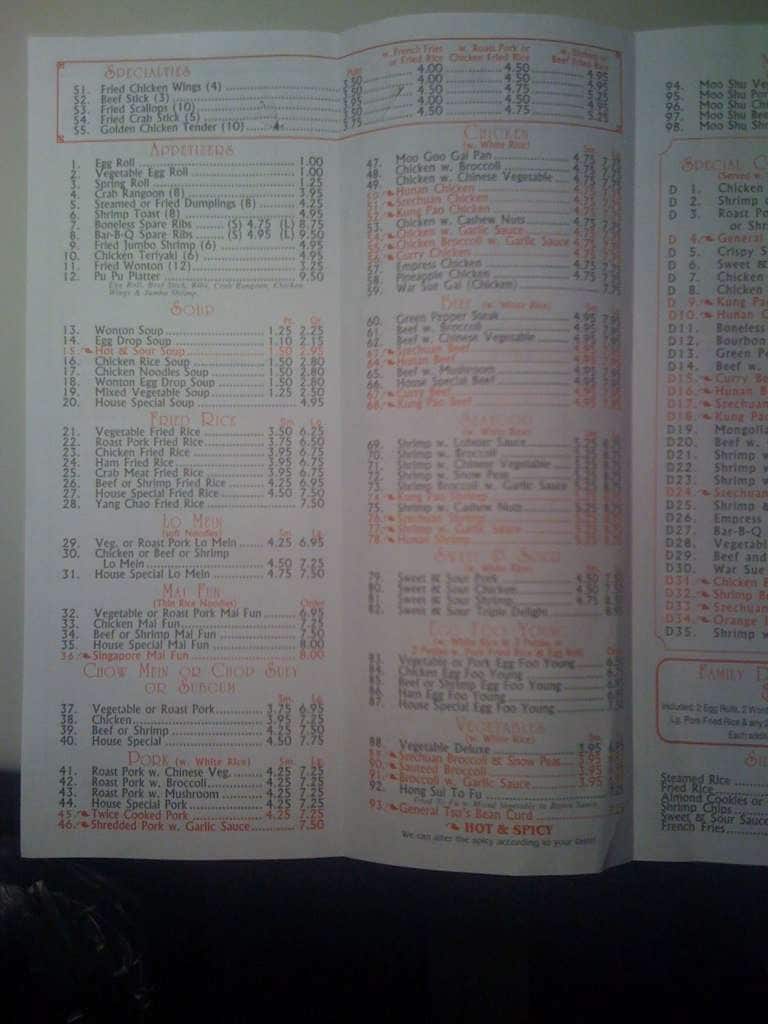 SPECIALTIES
w. French Fries or Fried Rice
w. Roast Pork or Chicken Fried Rice
w. Shrimp or Beef Fried Rice
S1. Fried Chicken Wings (4) 4.00 4.50 4.95
S2. Beef Stick (3) 4.00 4.50
S3. Fried Scallops (10) 4.50 4.75
S4. Fried Crab Stick (5) 4.00 4.50 4.95
S5. Golden Chicken Tender (10) 3.75 4.50 4.75 5.25
APPETIZERS
1. Egg Roll 1.00
2. Vegetable Egg Roll 1.00
3. Spring Roll 1.25
4. Crab Rangoon (8) 3.95
5. Steamed or Fried Dumplings (8) 4.25
6. Shrimp Toast (8) 4.95
7. Boneless Spare Ribs (S) 4.75 (L) 8.75
8. Bar-B-Q Spare Ribs (S) 4.95 (L) 9.50
9. Fried Jumbo Shrimp (6) 4.95
10. Chicken Teriyaki (6) 4.95
11. Fried Wonton (12) 3.25
12. Pu Pu Platter 9.50
Egg Roll, Beef Stick, Ribs, Crab Rangoon, Chicken
Wings & Jumbo Shrimp.
SOUP
Pt. Qt.
13. Wonton Soup 1.25 2.25
14. Egg Drop Soup 1.10 2.15
15. Hot & Sour Soup 1.50 2.95
16. Chicken Rice Soup 1.50 2.80
17. Chicken Noodles Soup 1.50 2.80
18. Wonton Egg Drop Soup 1.50 2.80
19. Mixed Vegetable Soup 1.25 2.50
20. House Special Soup 4.95
FRIED RICE
Sm. Lg.
21. Vegetable Fried Rice 3.50 6.25
22. Roast Pork Fried Rice 3.75 6.50
23. Chicken Fried Rice 3.95 6.75
24. Ham Fried Rice 3.95 6.75
25. Crab Meat Fried Rice 3.95 6.75
26. Beef or Shrimp Fried Rice 4.25 6.95
27. House Special Fried Rice 4.50 7.50
28. Yang Chao Fried Rice 7.50
LO MEIN
(soft Noodles)
Sm. Lg.
29. Veg. or Roast Pork Lo Mein 4.25 6.95
30. Chicken or Beef or Shrimp
Lo Mein 4.50 7.25
31. House Special Lo Mein 4.75 7.50
MAI FUN
(Thin Rice Noodles)
Order
32. Vegetable or Roast Pork Mai Fun 6.95
33. Chicken Mai Fun 7.25
34. Beef or Shrimp Mai Fun 7.50
35. House Special Mai Fun 8.00
36. Singapore Mai Fun 8.00
CHOW MEIN OR CHOP SUEY
OR SUBGUM
Sm. Lg.
37. Vegetable or Roast Pork 3.75 6.95
38. Chicken 3.95 7.25
39. Beef or Shrimp 4.25 7.50
40. House Special 4.50 7.75
PORK (w. White Rice)
Sm. Lg.
41. Roast Pork w. Chinese Veg. 4.25 7.25
42. Roast Pork w. Broccoli 4.25 7.25
43. Roast Pork w. Mushroom 4.25 7.25
44. House Special Pork 4.25 7.25
45. Twice Cooked Pork 4.25 7.25
46. Shredded Pork w. Garlic Sauce 7.50
CHICKEN
(w. White Rice)
47. Moo Goo Gai Pan 4.75
48. Chicken w. Broccoli 4.75
49. Chicken w. Chinese Vegetable 4.75
50. Hunan Chicken 4.75
51. Szechuan Chicken 4.75
52. Kung Pao Chicken 4.75
53. Chicken w. Cashew Nuts 4.75
54. Chicken w. Garlic Sauce 4.75
55. Chicken Broccoli w. Garlic Sauce 4.75
56. Curry Chicken 4.75
57. Empress Chicken 4.75
58. Pineapple Chicken 4.75
59. War Sue Gai (Chicken)
BEEF (w. White Rice)
60. Green Pepper Steak 4.95
61. Beef w. Broccoli 4.95
62. Beef w. Chinese Vegetable 4.95
63. Szechuan Beef 4.95
64. Hunan Beef 4.95
65. Beef w. Mushroom 4.95
66. House Special Beef 4.95
67. Curry Beef 4.95
68. Kung Pao Beef 4.95
SEAFOOD
(w. White Rice)
69. Shrimp w. Lobster Sauce 5.25
70. Shrimp w. Broccoli 5.25
71. Shrimp w. Chinese Vegetable 5.25
72. Shrimp w. Snow Peas 5.25
73. Shrimp Broccoli w. Garlic Sauce 5.25
74. Kung Pao Shrimp 5.25
75. Shrimp w. Cashew Nuts 5.25
76. Szechuan Shrimp 5.25
77. Shrimp w. Garlic Sauce 5.25
78. Hunan Shrimp 5.25
SWEET & SOUR
(w. White Rice)
79. Sweet & Sour Pork 4.50
80. Sweet & Sour Chicken 4.50
81. Sweet & Sour Shrimp 4.75
82. Sweet & Sour Triple Delight
EGG FOO YOUNG
83. Vegetable or Pork Egg Foo Young
84. Chicken Egg Foo Young
85. Beef or Shrimp Egg Foo Young
86. Ham Egg Foo Young
87. House Special Egg Foo Young
VEGETABLES
(w. White Rice)
88. Vegetable Deluxe 3.95
89. Szechuan Broccoli & Snow Peas 3.95
90. Sauteed Broccoli 3.95
91. Broccoli w. Garlic Sauce 3.95
92. Hong Sui To Fu
Fried To Fu w. Mixed Vegetable in Brown Sauce
93. General Tso's Bean Curd
HOT & SPICY
We can alter the spicy according to your taste!
94. Moo Shu Ve
95. Moo Shu Po
96. Moo Shu Ch
97. Moo Shu Bee
98. Moo Shu Sh
SPECIAL C
(Served w.
D 1. Chicken
D 2. Shrimp
D 3. Roast Po
or Shr
D 4. General
D 5. Crispy S
D 6. Sweet &
D 7. Chicken
D 8. Chicken
D 9. Kung Pa
D10. Hunan C
D11. Boneless
D12. Bourbon
D13. Green Pe
D14. Beef w.
D15. Curry Be
D16. Hunan B
D17. Szechuan
D18. Kung Pa
D19. Mongolia
D20. Beef w.
D21. Shrimp w
D22. Shrimp w
D23. Shrimp w
D24. Szechuan
D25. Shrimp &
D26. Empress
D27. Bar-B-Q
D28. Vegetabl
D29. Beef and
D30. War Sue
D31. Chicken B
D32. Shrimp Br
D33. Szechuan
D34. Orange
D35. Shrimp w
FAMILY D
Included: 2 Egg Rolls, 2 Wont
Lg. Pork Fried Rice & any 2
Each addi
Steamed Rice
Fried Rice
Almond Cookies or
Shrimp Chips
Sweet & Sour Sauce
French Fries